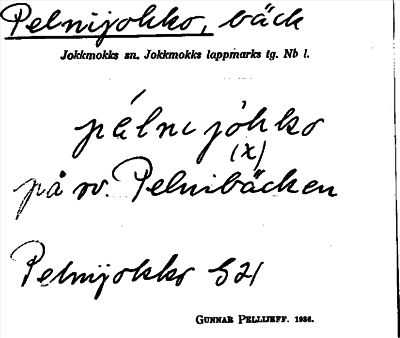 Pelnijokko, bäck
Jokkmokks sn. Jokkmokks lappmarks tg. Nb l.
pélnijòkko
(x)
på sv. Pelnibäcken
Pelnijokko S21
GUNNAR PELLIJEFF. 1936.